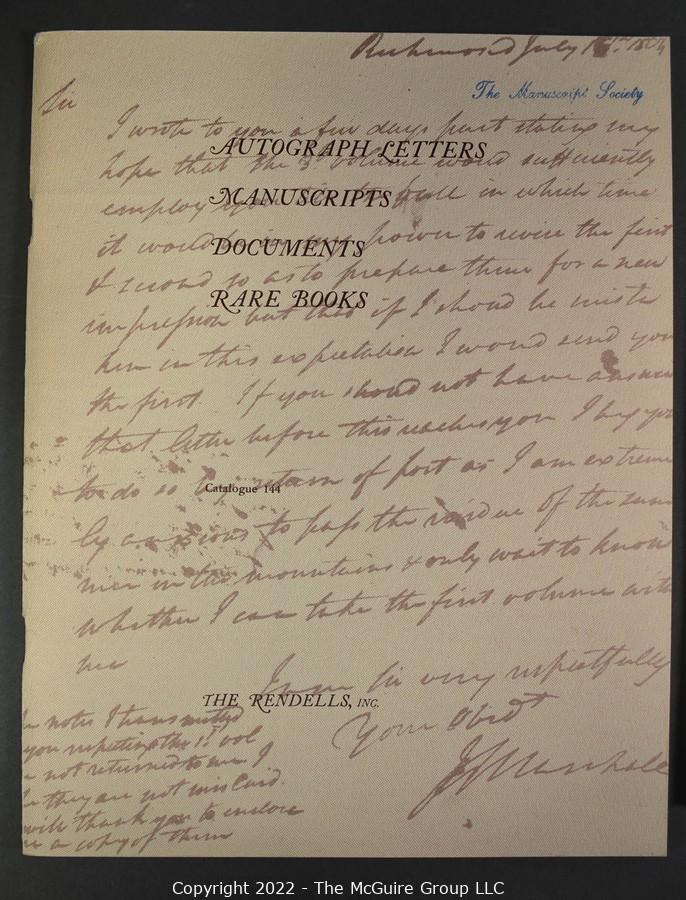 Richmond July 1804
The Manuscript Society
Sir
I wrote to you a few days past stating my
AUTOGRAPH LETTERS
hope that the 3d volume would sufficiently
MANUSCRIPTS
employ in which time
it would power to revise the first
DOCUMENTS
& second so as to prepare them for a new
RARE BOOKS
impression but that if I shoud be mista
ken in this expectation I woud send you
the first. If you shoud not have answer
that letter before this reaches you I beg you
to do so by return of post as I am extreme
Catalogue 144
ly anxious to pass the residue of the sum
mer in the mountains & only wait to know
whether I can take the first volume with
me
I am Sir very respectfully
THE RENDELLS, INC.
Your Obedt
J Marshall
notes I transmitted
you respecting the 1st vol
not returned to me I
they are not mislaid.
will thank you to enclose
a copy of them
Copyright 2022 - The McGuire Group LLC